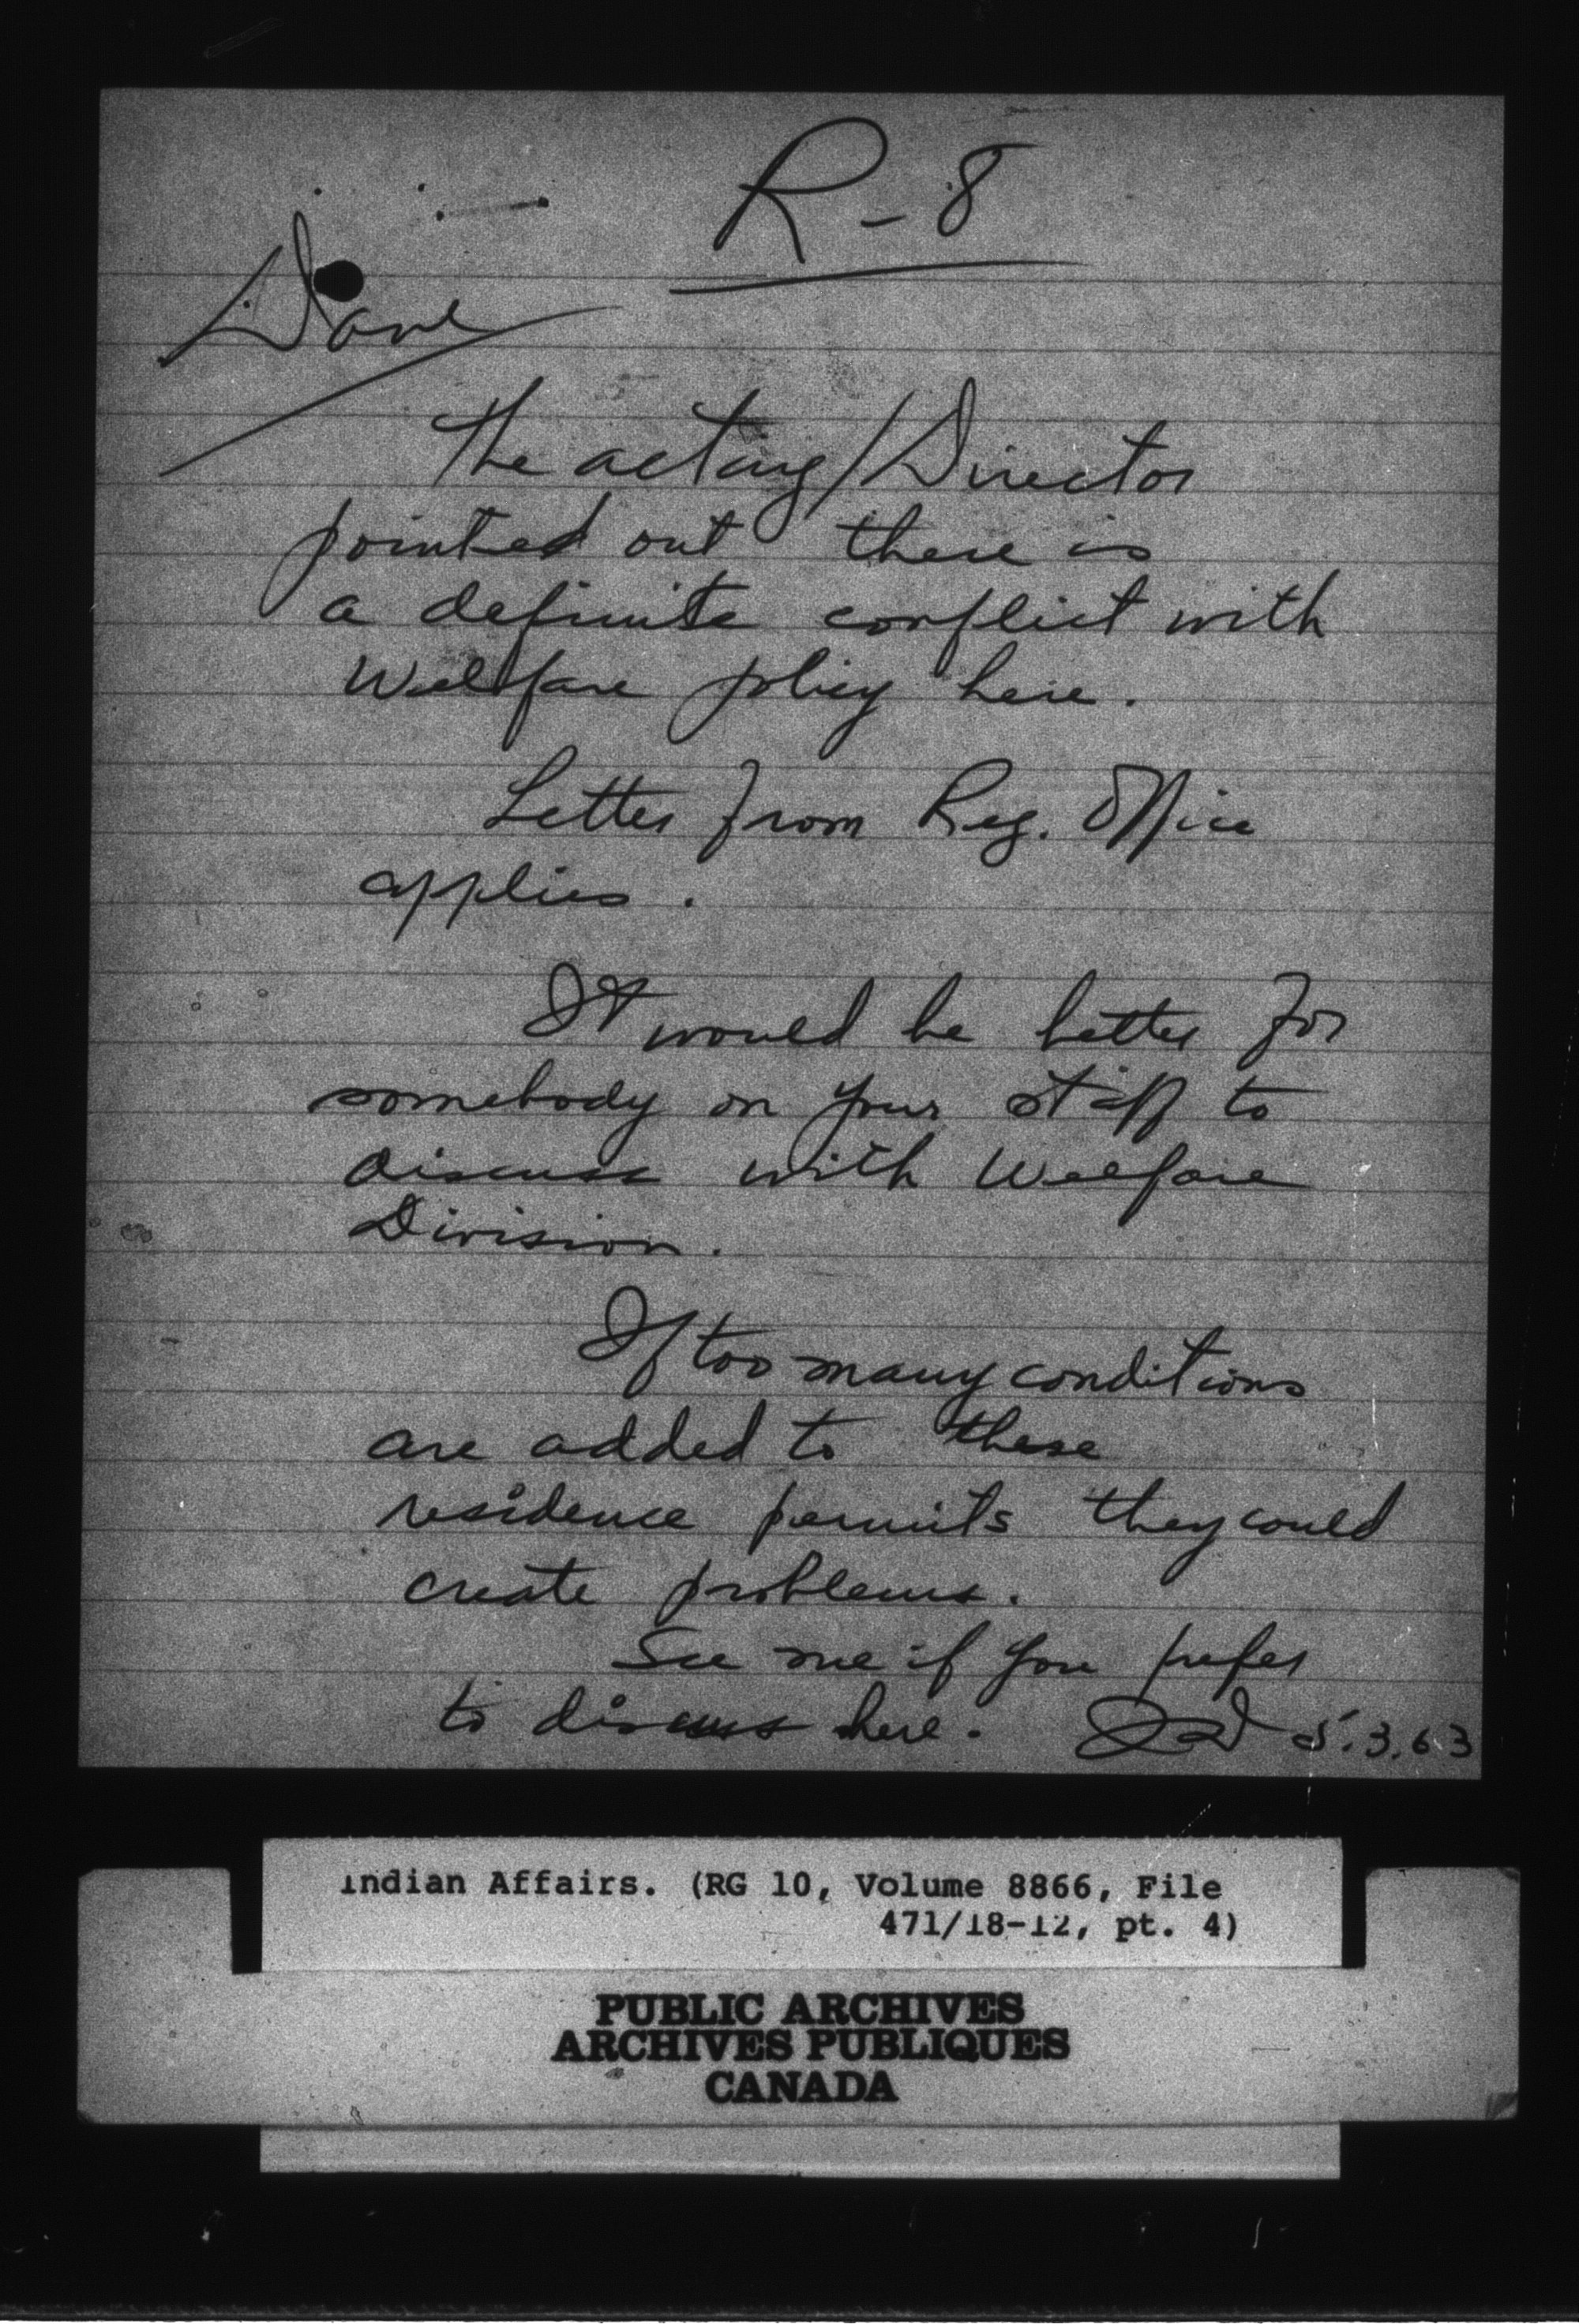 R-8
Dave
The acting/Director
pointed out there is
a definite conflict with
Welfare policy here.
Letter from Reg. Office
applies.
It would be better for
somebody on your staff to
discuss with Welfare
Division.
If too many conditions
are added to these
residence permits they could
create problems.
See me if you prefer
to discuss here. 5.3.63
Indian Affairs. (RG 10, Volume 8866, File
471/18-12, pt. 4)
PUBLIC ARCHIVES
ARCHIVES PUBLIQUES
CANADA